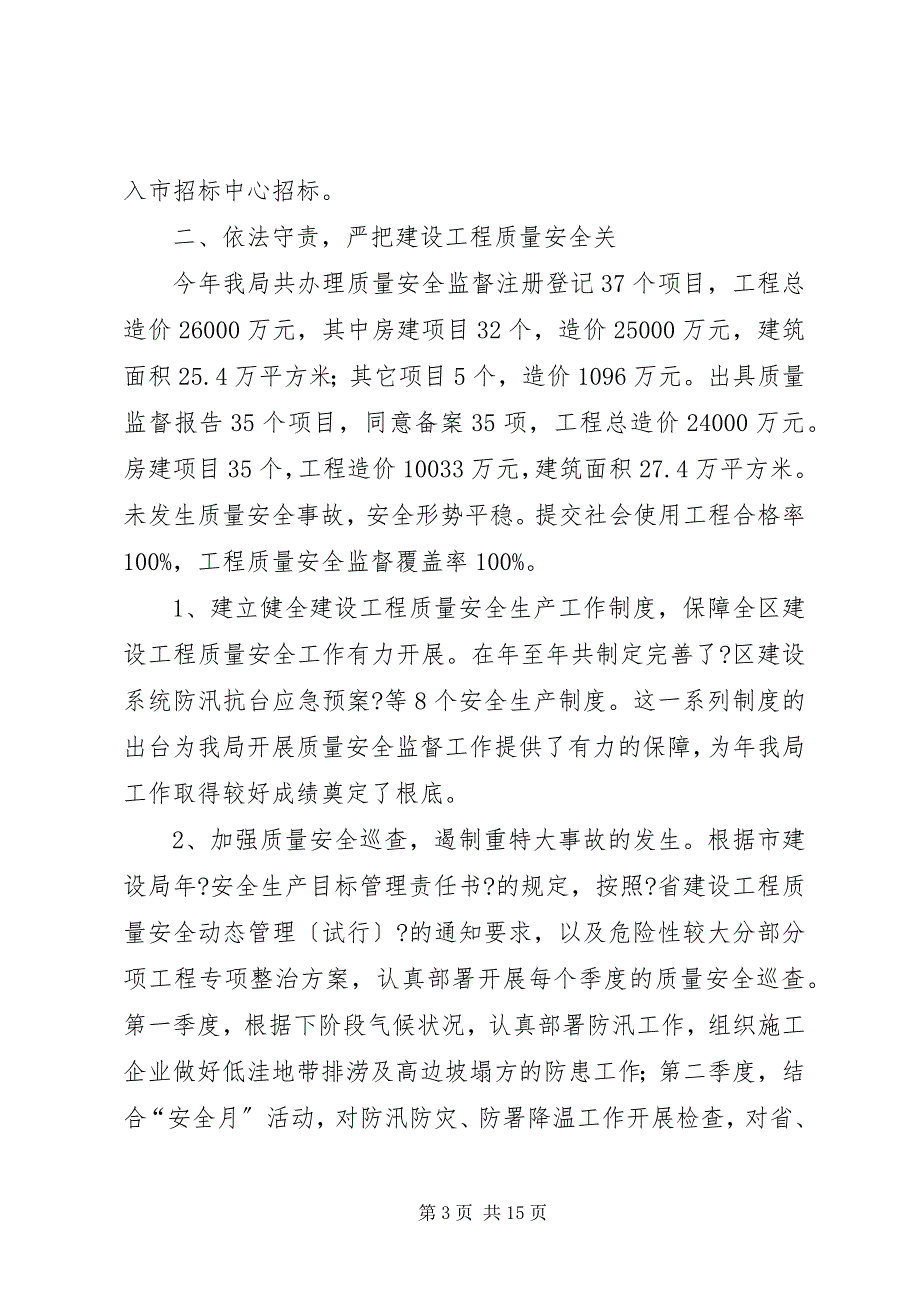 入市招标中心招标。
二、依法守责，严把建设工程质量安全关
今年我局共办理质量安全监督注册登记 37 个项目，工程总
造价 26000 万元，其中房建项目 32 个，造价 25000 万元，建筑
面积 25.4 万平方米；其它项目 5 个，造价 1096 万元。出具质量
监督报告 35 个项目，同意备案 35 项，工程总造价 24000 万元。
房建项目 35 个，工程造价 10033 万元，建筑面积 27.4 万平方米。
未发生质量安全事故，安全形势平稳。提交社会使用工程合格率
100%，工程质量安全监督覆盖率 100%。
1、建立健全建设工程质量安全生产工作制度，保障全区建
设工程质量安全工作有力开展。在年至年共制定完善了?区建设
系统防汛抗台应急预案?等 8 个安全生产制度。这一系列制度的
出台为我局开展质量安全监督工作提供了有力的保障，为年我局
工作取得较好成绩奠定了根底。
2、加强质量安全巡查，遏制重特大事故的发生。根据市建
设局年?安全生产目标管理责任书?的规定，按照?省建设工程质
量安全动态管理〔试行〕?的通知要求，以及危险性较大分部分
项工程专项整治方案，认真部署开展每个季度的质量安全巡查。
第一季度，根据下阶段气候状况，认真部署防汛工作，组织施工
企业做好低洼地带排涝及高边坡塌方的防患工作；第二季度，结
合“安全月〞活动，对防汛防灾、防署降温工作开展检查，对省、
第 3 页 共 15 页